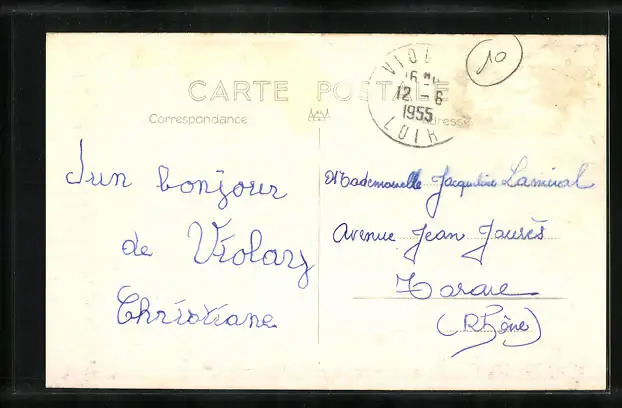 CARTE POSTALE
Correspondance
Adresse
VIOL
16 H
12 - 6
1955
LOIR
10
Un bonjour
de Violay
Christiane
Mademoiselle Jacqueline
Avenue Jean Jaurès
Tarare
(Rhône)